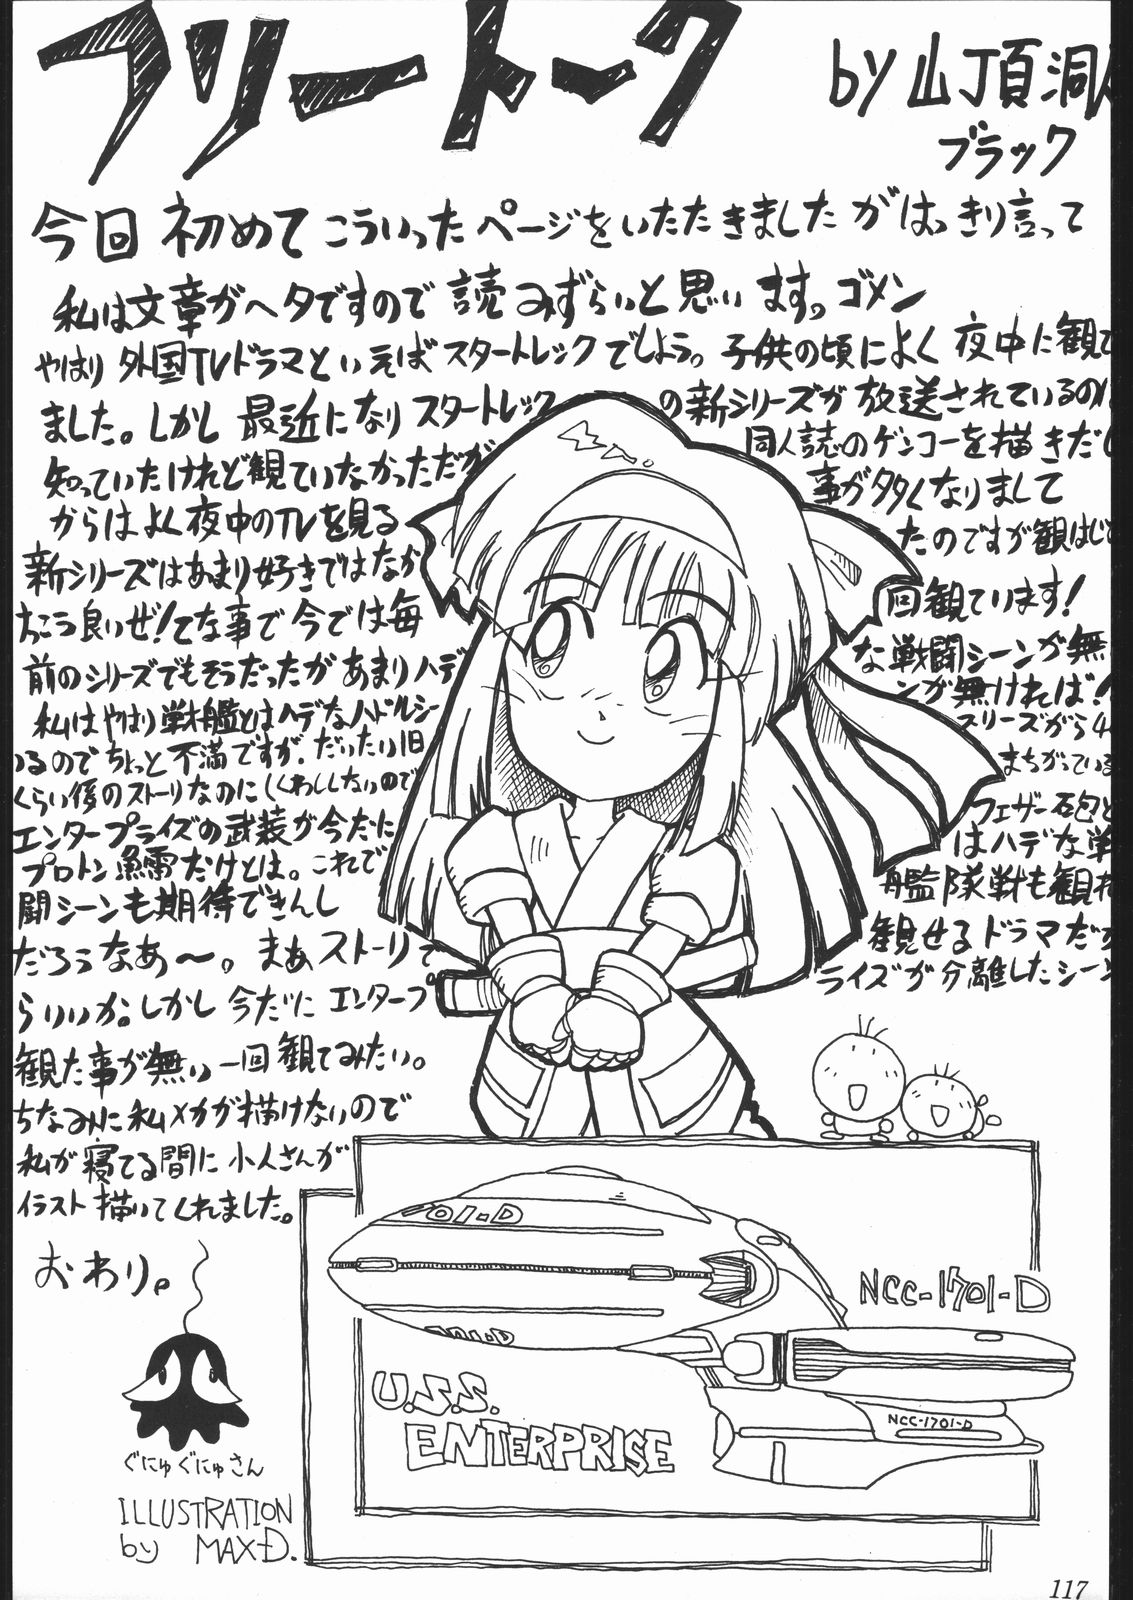 フリートーク
by 山頂洞人
ブラック
今回 初めて こういった ページを いただきました がはっきり言って
私は文章がヘタですので 読みずらいと思います。ゴメン
やはり 外国TVドラマといえば スタートレックでしょう。子供の頃によく 夜中に観て
ました。しかし 最近になり スタートレック の新シリーズが 放送されているのは
知っていたけれど観ていなかっただが 同人誌のゲンコーを描きだし
からは よく夜中のTVを見る 事が多くなりまして
新シリーズはあまり好きではなか たのですが観はじめ
ちこう良いぜ!てな事で 今では毎 回観ています!
前のシリーズでもそうだったが あまりハデ な戦闘シーンが無
私はやはり戦艦とはハデなバトルシー ンが無ければ!
いるのでちょっと不満ですが、だいたい旧 スリーズから4
くらい後のストーリなのに(くわしくないので まちがっている
エンタープライズの武装が今だに フェザー砲と
プロトン魚雷だけとは。これで はハデな戦
闘シーンも期待できんし 艦隊戦も観れ
だろうなあ〜。まあストーリで 観せるドラマだか
らいいか。しかし 今だに エンタープ ライズが分離したシーン
観た事が無い 一回 観てみたい。
ちなみに私メカが描けないので
私が寝てる間に 小人さんが
イラスト描いてくれました。
おわり。
ぐにゅぐにゅさん
ILLUSTRATION
by MAX-D.
01-D
NCC-1701-D
01-D
U.S.S.
ENTERPRISE
NCC-1701-D
117